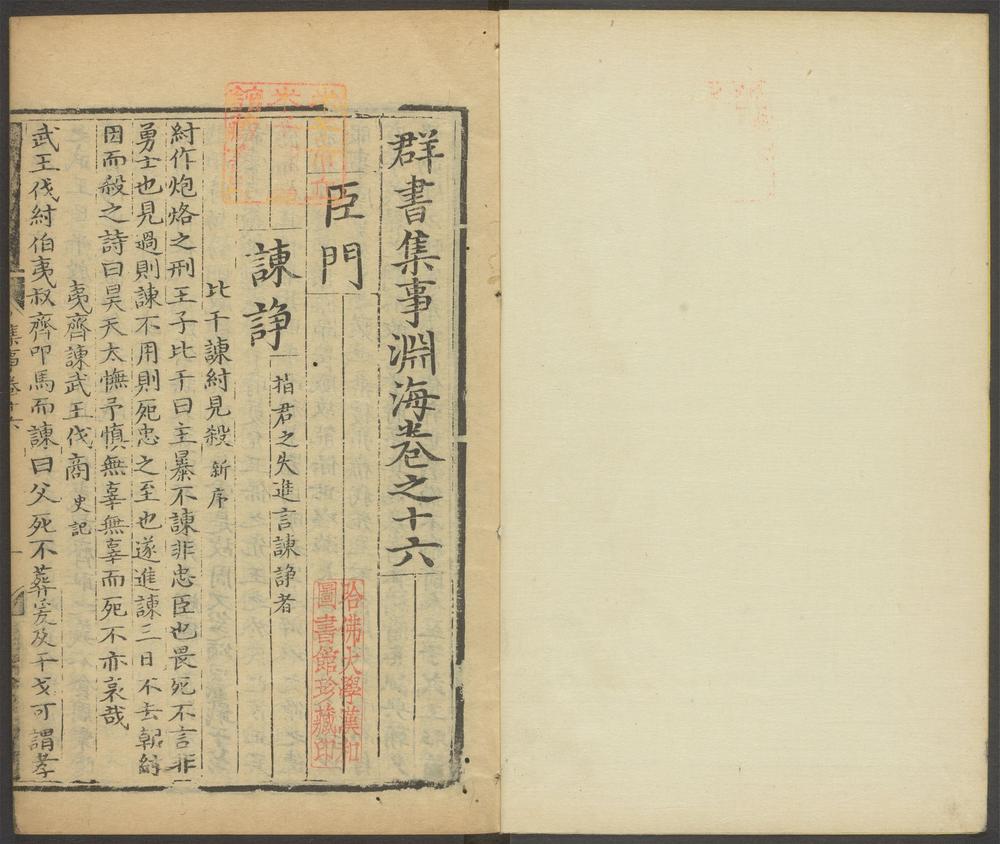 群書集事淵海卷之十六
臣門
諫諍 指君之失進言諫諍者
比干諫紂見殺 新序
紂作炮烙之刑王子比干曰主暴不諫非忠臣也畏死不言非
勇士也見過則諫不用則死忠之至也遂進諫三日不去朝紂
因而殺之詩曰昊天太憮予慎無辜無辜而死不亦哀哉
夷齊諫武王伐商 史記
武王伐紂伯夷叔齊叩馬而諫曰父死不葬爰及干戈可謂孝
集事卷十六
哈佛大學漢和
圖書館珍藏印